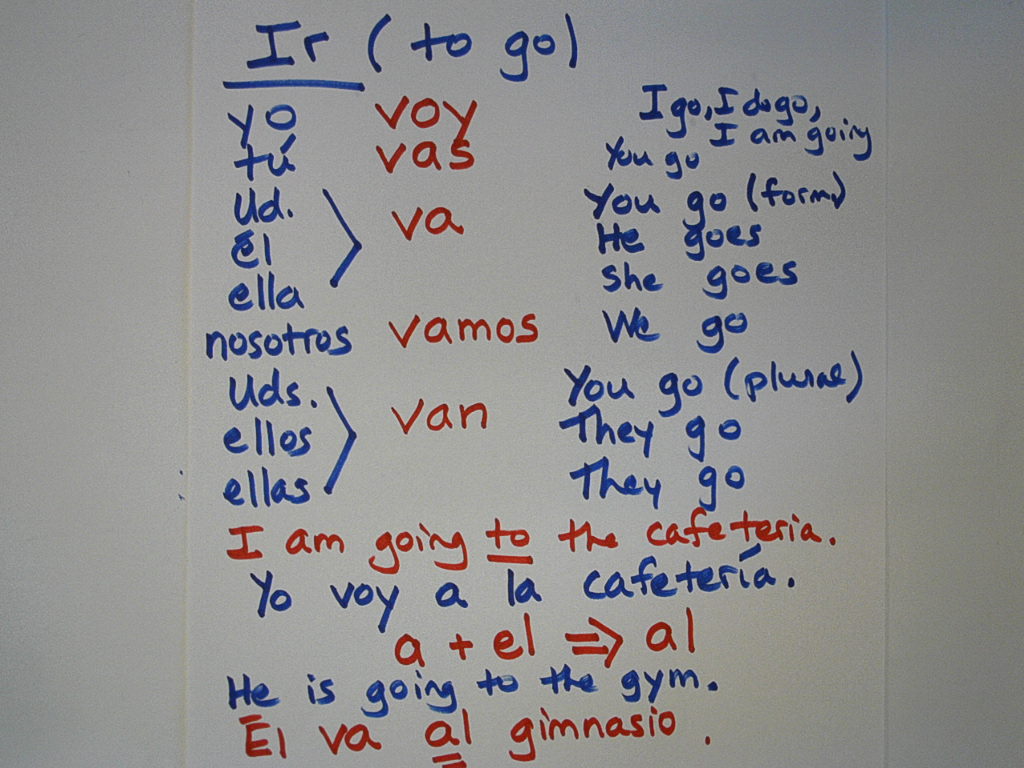 Ir (to go)
yo voy I go, I do go,
I am going
tú vas You go
Ud. va You go (form)
Él He goes
ella She goes
nosotros vamos We go
Uds. van You go (plural)
ellos They go
ellas They go
I am going to the cafeteria.
Yo voy a la cafetería.
a + el ⇒ al
He is going to the gym.
Él va al gimnasio.